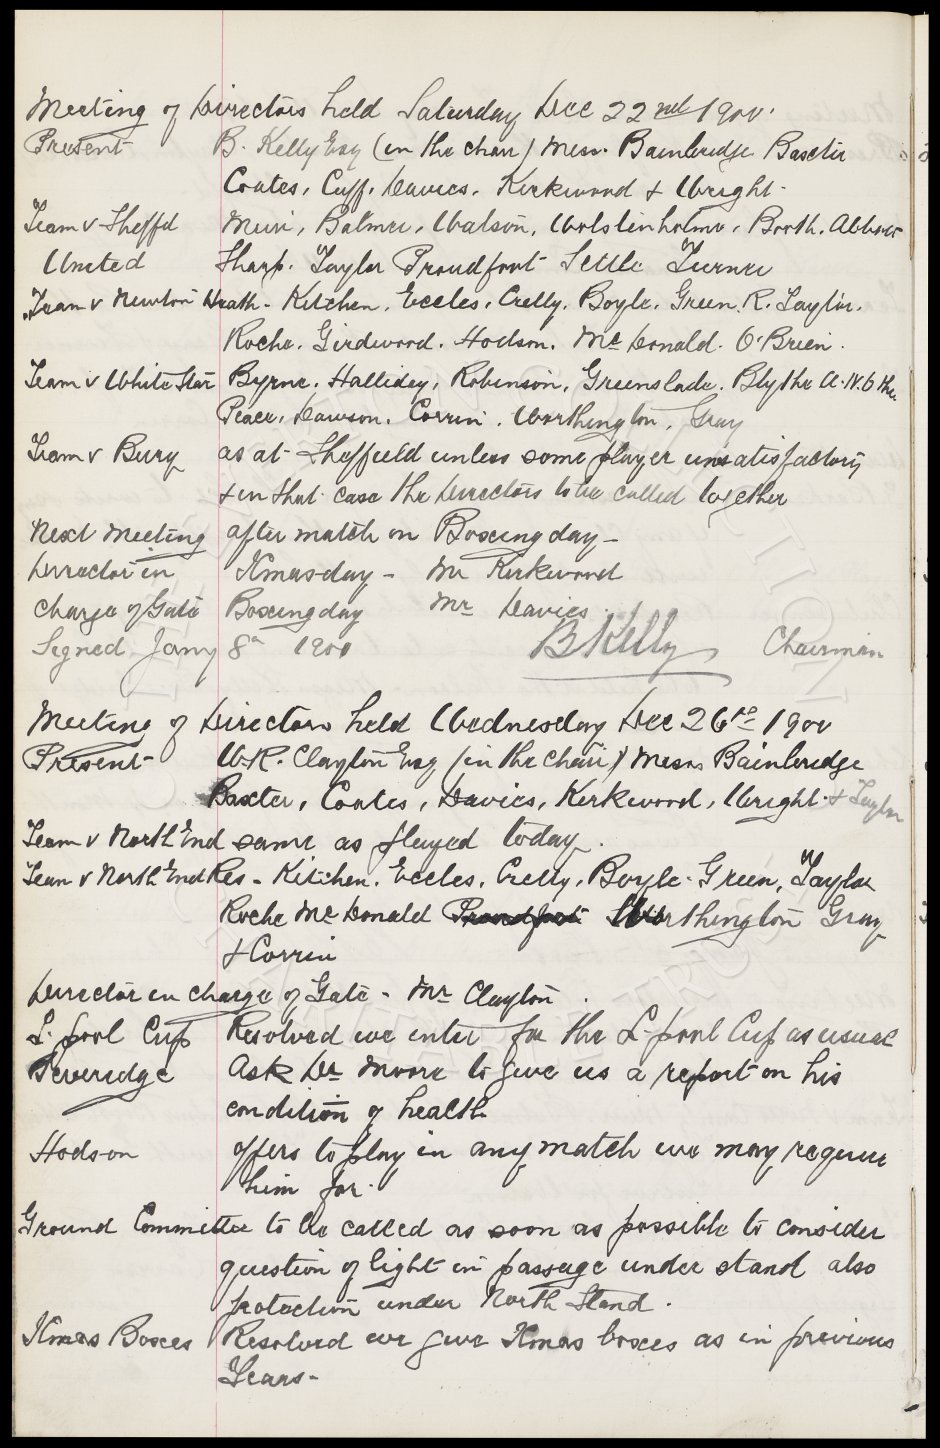 Meeting of Directors held Saturday Dec 22nd 1900.
Present B. Kelly Esq (in the chair) Messrs. Bainbridge Baxter
Coates, Cuff, Davies, Kirkwood & Wright.
Team v Sheffd Muir, Balmer, Watson, Wolstenholme, Booth, Abbott
United Sharp. Taylor Proudfoot Settle Turner
Team v Newton Heath - Kitchen, Eccles, Crelly, Boyle, Green, R. Taylor.
Roche, Girdwood. Hodson. Mc Donald. O'Brien.
Team v White Star Byrne. Halliday, Robinson, Greenslade. Blythe A.N.Other
Peace, Dawson, Corrin, Worthington, Gray
Team v Bury as at Sheffield unless some player unsatisfactory
& in that case the Directors to be called together
Next Meeting after match on Boxing day -
Director in Xmas day - Mr Kirkwood
charge of Gate Boxing day Mr Davies.
Signed Jany 8th 1900 B Kelly Chairman
Meeting of Directors held Wednesday Dec 26th 1900
Present W.R. Clayton Esq (in the chair) Messrs Bainbridge
Baxter, Coates, Davies, Kirkwood, Wright. & Taylor
Team v North End same as played today.
Team v North End Res - Kitchen, Eccles, Crelly, Boyle. Green, Taylor
Roche Mc Donald Proudfoot Worthington Gray
& Corrin
Director in charge of Gate - Mr Clayton.
L-pool Cup Resolved we enter for the L-pool Cup as usual
Beveridge Ask Dr Moore to give us a report on his
condition of health
Hodson offers to play in any match we may require
him for.
Ground Committee to be called as soon as possible to consider
question of light in passage under stand also
protection under North Stand.
Xmas Boxes Resolved we give Xmas boxes as in previous
Years -